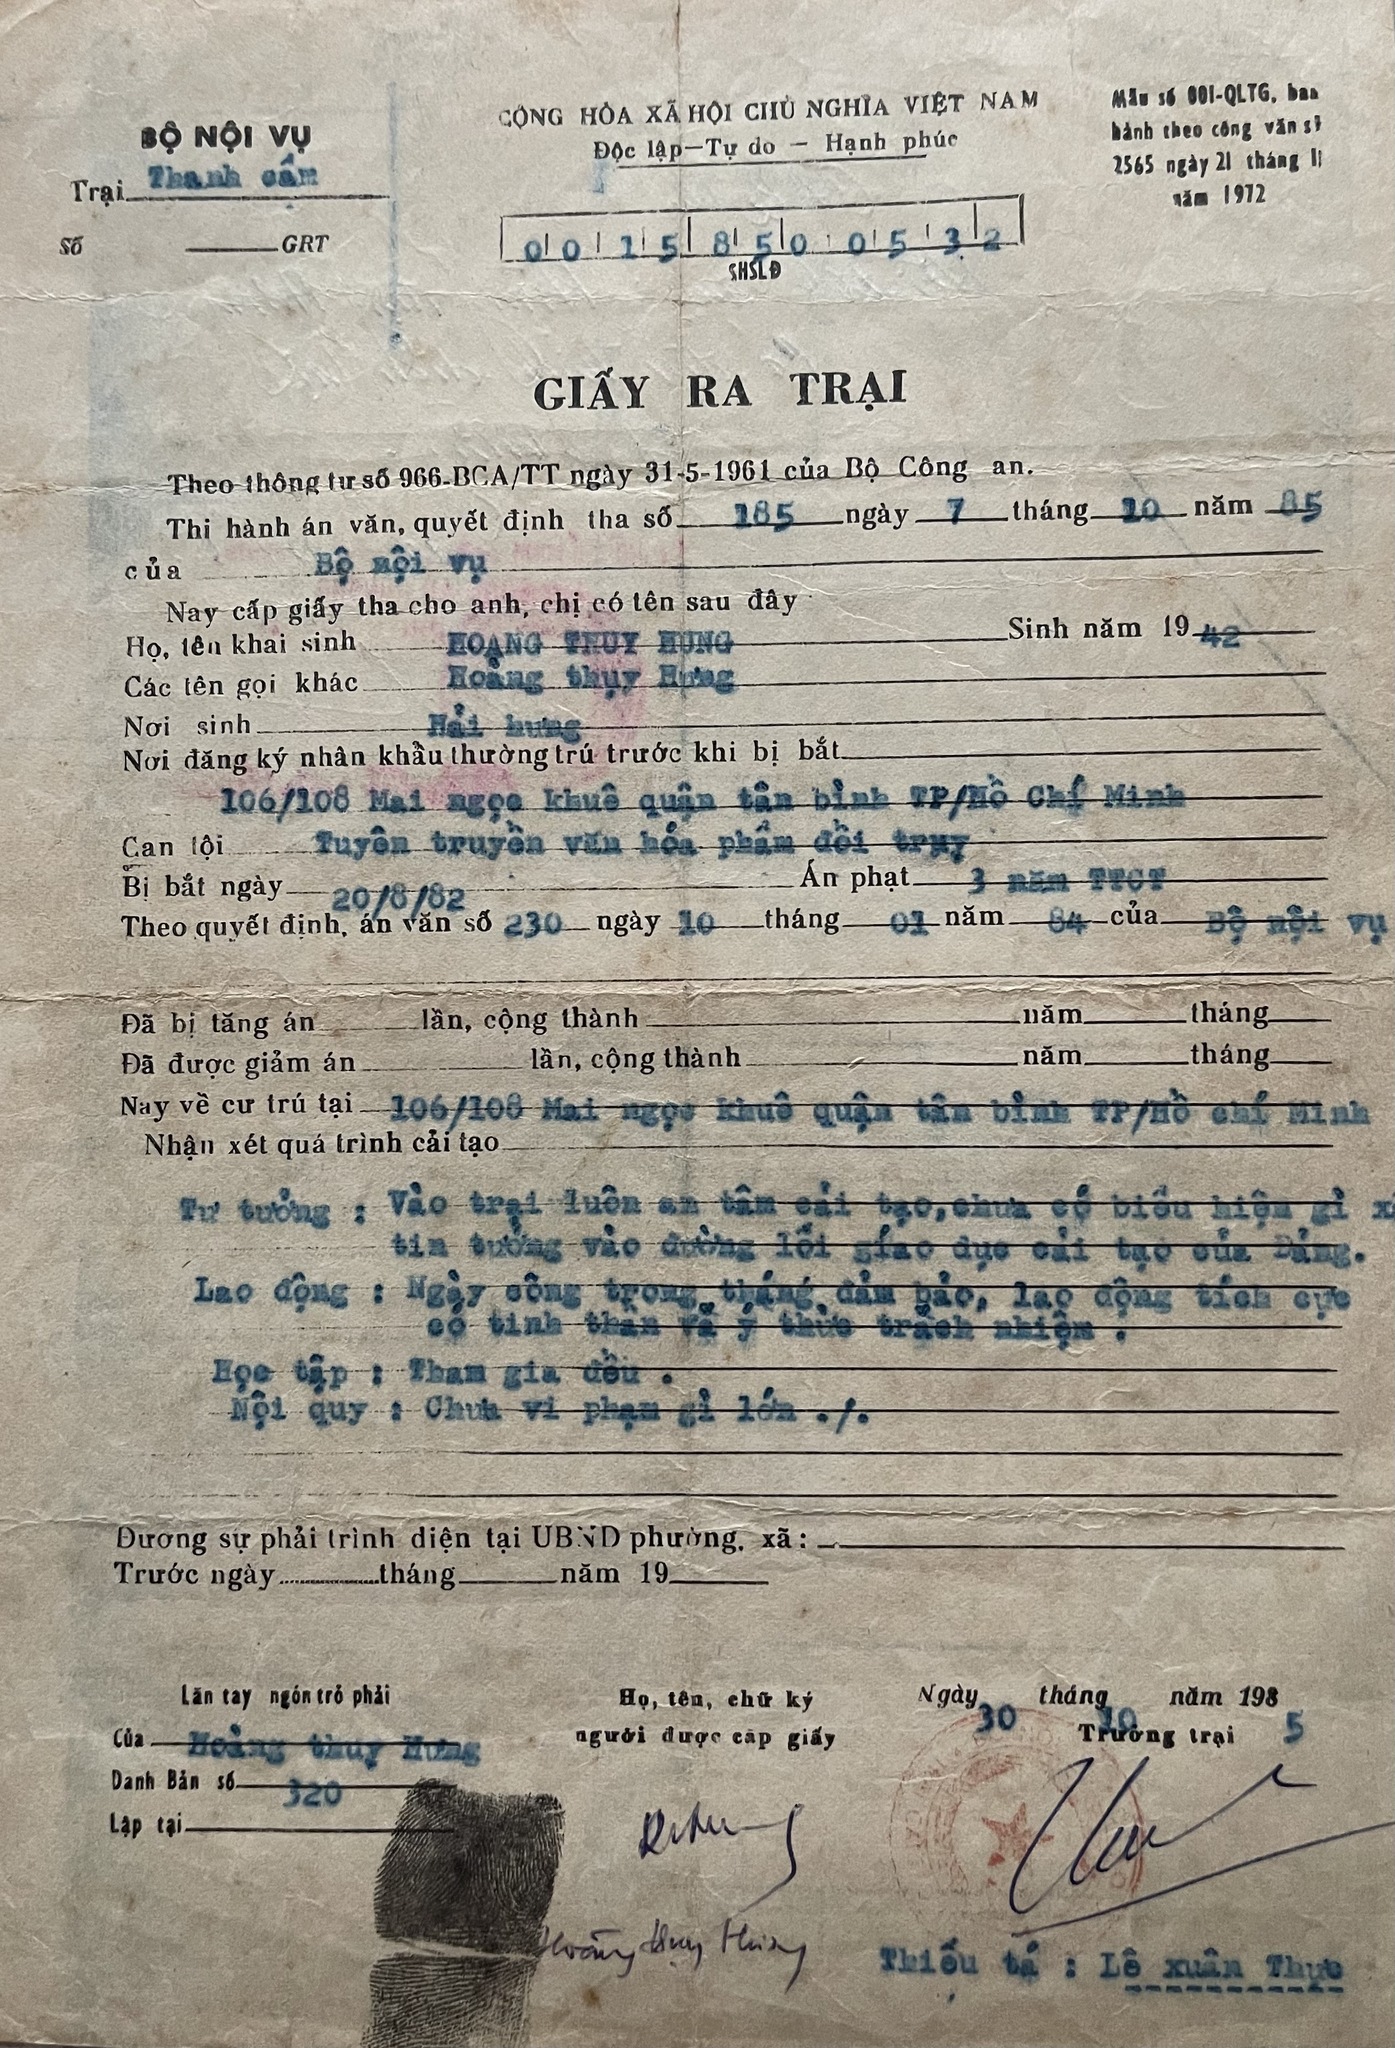 BỘ NỘI VỤ
Trại Thanh cẩm
Số GRT
CỘNG HÒA XÃ HỘI CHỦ NGHĨA VIỆT NAM
Độc lập—Tự do — Hạnh phúc
Mẫu số 001-QLTG, ban
hành theo công văn số
2565 ngày 21 tháng 11
năm 1972
0 0 1 5 8 5 0 0 5 3 2
SHSLĐ
GIẤY RA TRẠI
Theo thông tư số 966-BCA/TT ngày 31-5-1961 của Bộ Công an.
Thi hành án văn, quyết định tha số 185 ngày 7 tháng 10 năm 85
của Bộ nội vụ
Nay cấp giấy tha cho anh, chị có tên sau đây
Họ, tên khai sinh HOANG THUY HUNG Sinh năm 1942
Các tên gọi khác Hoàng thụy Hưng
Nơi sinh Hải hưng
Nơi đăng ký nhân khẩu thường trú trước khi bị bắt
106/108 Mai ngọc khuê quận tân bình TP/Hồ Chí Minh
Can tội Tuyên truyền văn hóa phẩm đồi trụy
Bị bắt ngày 20/8/82 Án phạt 3 năm TTCT
Theo quyết định, án văn số 230 ngày 10 tháng 01 năm 84 của Bộ nội vụ
Đã bị tăng án lần, cộng thành năm tháng
Đã được giảm án lần, cộng thành năm tháng
Nay về cư trú tại 106/108 Mai ngọc khuê quận tân bình TP/Hồ chí Minh
Nhận xét quá trình cải tạo
Tư tưởng : Vào trại luôn an tâm cải tạo, chưa có biểu hiện gì
tin tưởng vào đường lối giáo dục cải tạo của Đảng.
Lao động : Ngày công trong tháng đảm bảo, lao động tích cực
có tinh thần và ý thức trách nhiệm .
Học tập : Tham gia đều .
Nội quy : Chưa vi phạm gì lớn ./.
Đương sự phải trình diện tại UBND phường, xã :
Trước ngày tháng năm 19
Lăn tay ngón trỏ phải
Của Hoàng thuy Hưng
Danh Bản số 320
Lập tại
Họ, tên, chữ ký
người được cấp giấy
Hoàng thụy Hưng
Ngày 30 tháng 10 năm 1985
Trưởng trại
Thiếu tá : Lê xuân Thực